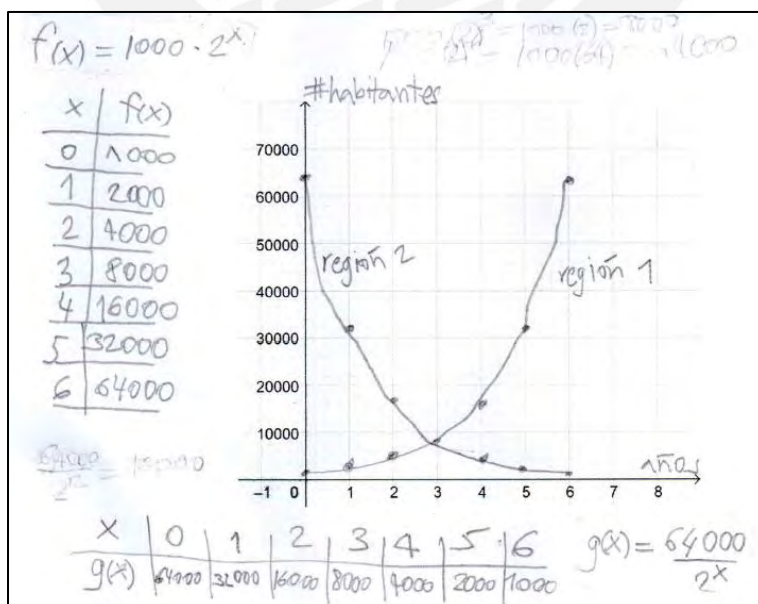 f(x) = 1000 · 2^x
= 1000
x | f(x)
0 | 1000
1 | 2000
2 | 4000
3 | 8000
4 | 16000
5 | 32000
6 | 64000
#habitantes
70000
60000
50000
40000
30000
20000
10000
región 2
región 1
años
-1 0 1 2 3 4 5 6 7 8
64000
x | 0 | 1 | 2 | 3 | 4 | 5 | 6
g(x) | 64000 | 32000 | 16000 | 8000 | 4000 | 2000 | 1000
g(x) = 64000 / 2^x